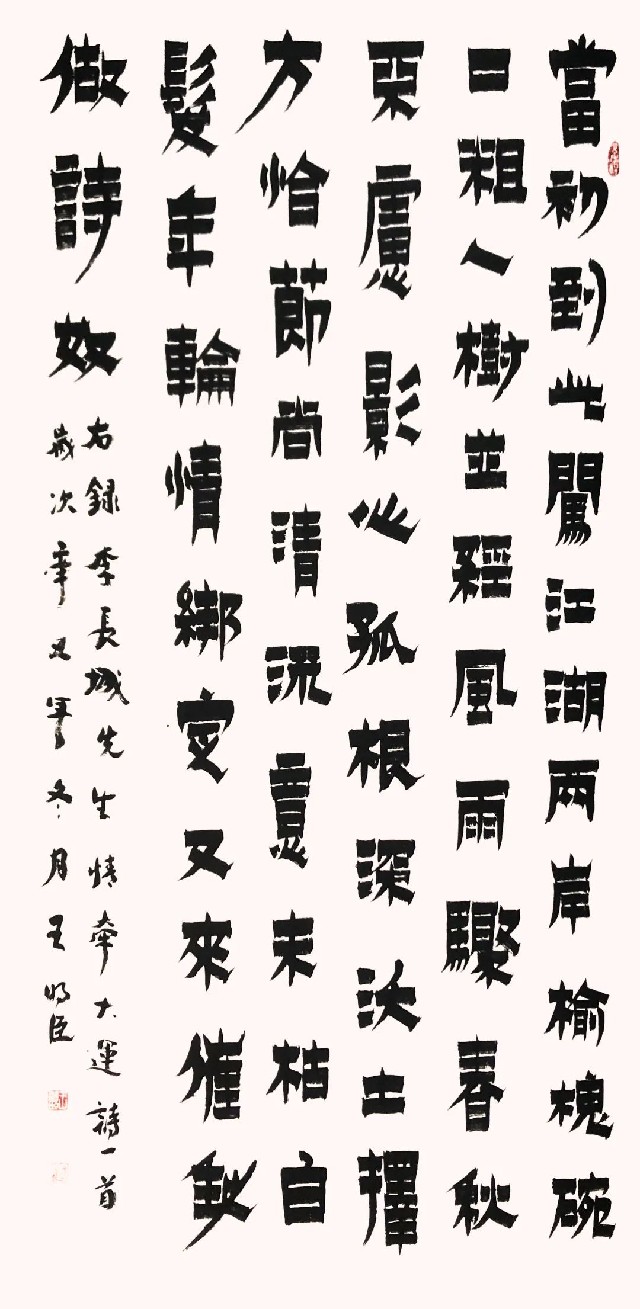 當初到此闖江湖兩岸榆槐碗
口粗一樹並經風雨驟春秋
慮影心孤根深沃土擇
方恰節尚清流意未枯白
髮年輪情綁定又來催我
做詩奴
右錄李長城先生情牽大運詩一首
歲次辛丑年冬月王明臣